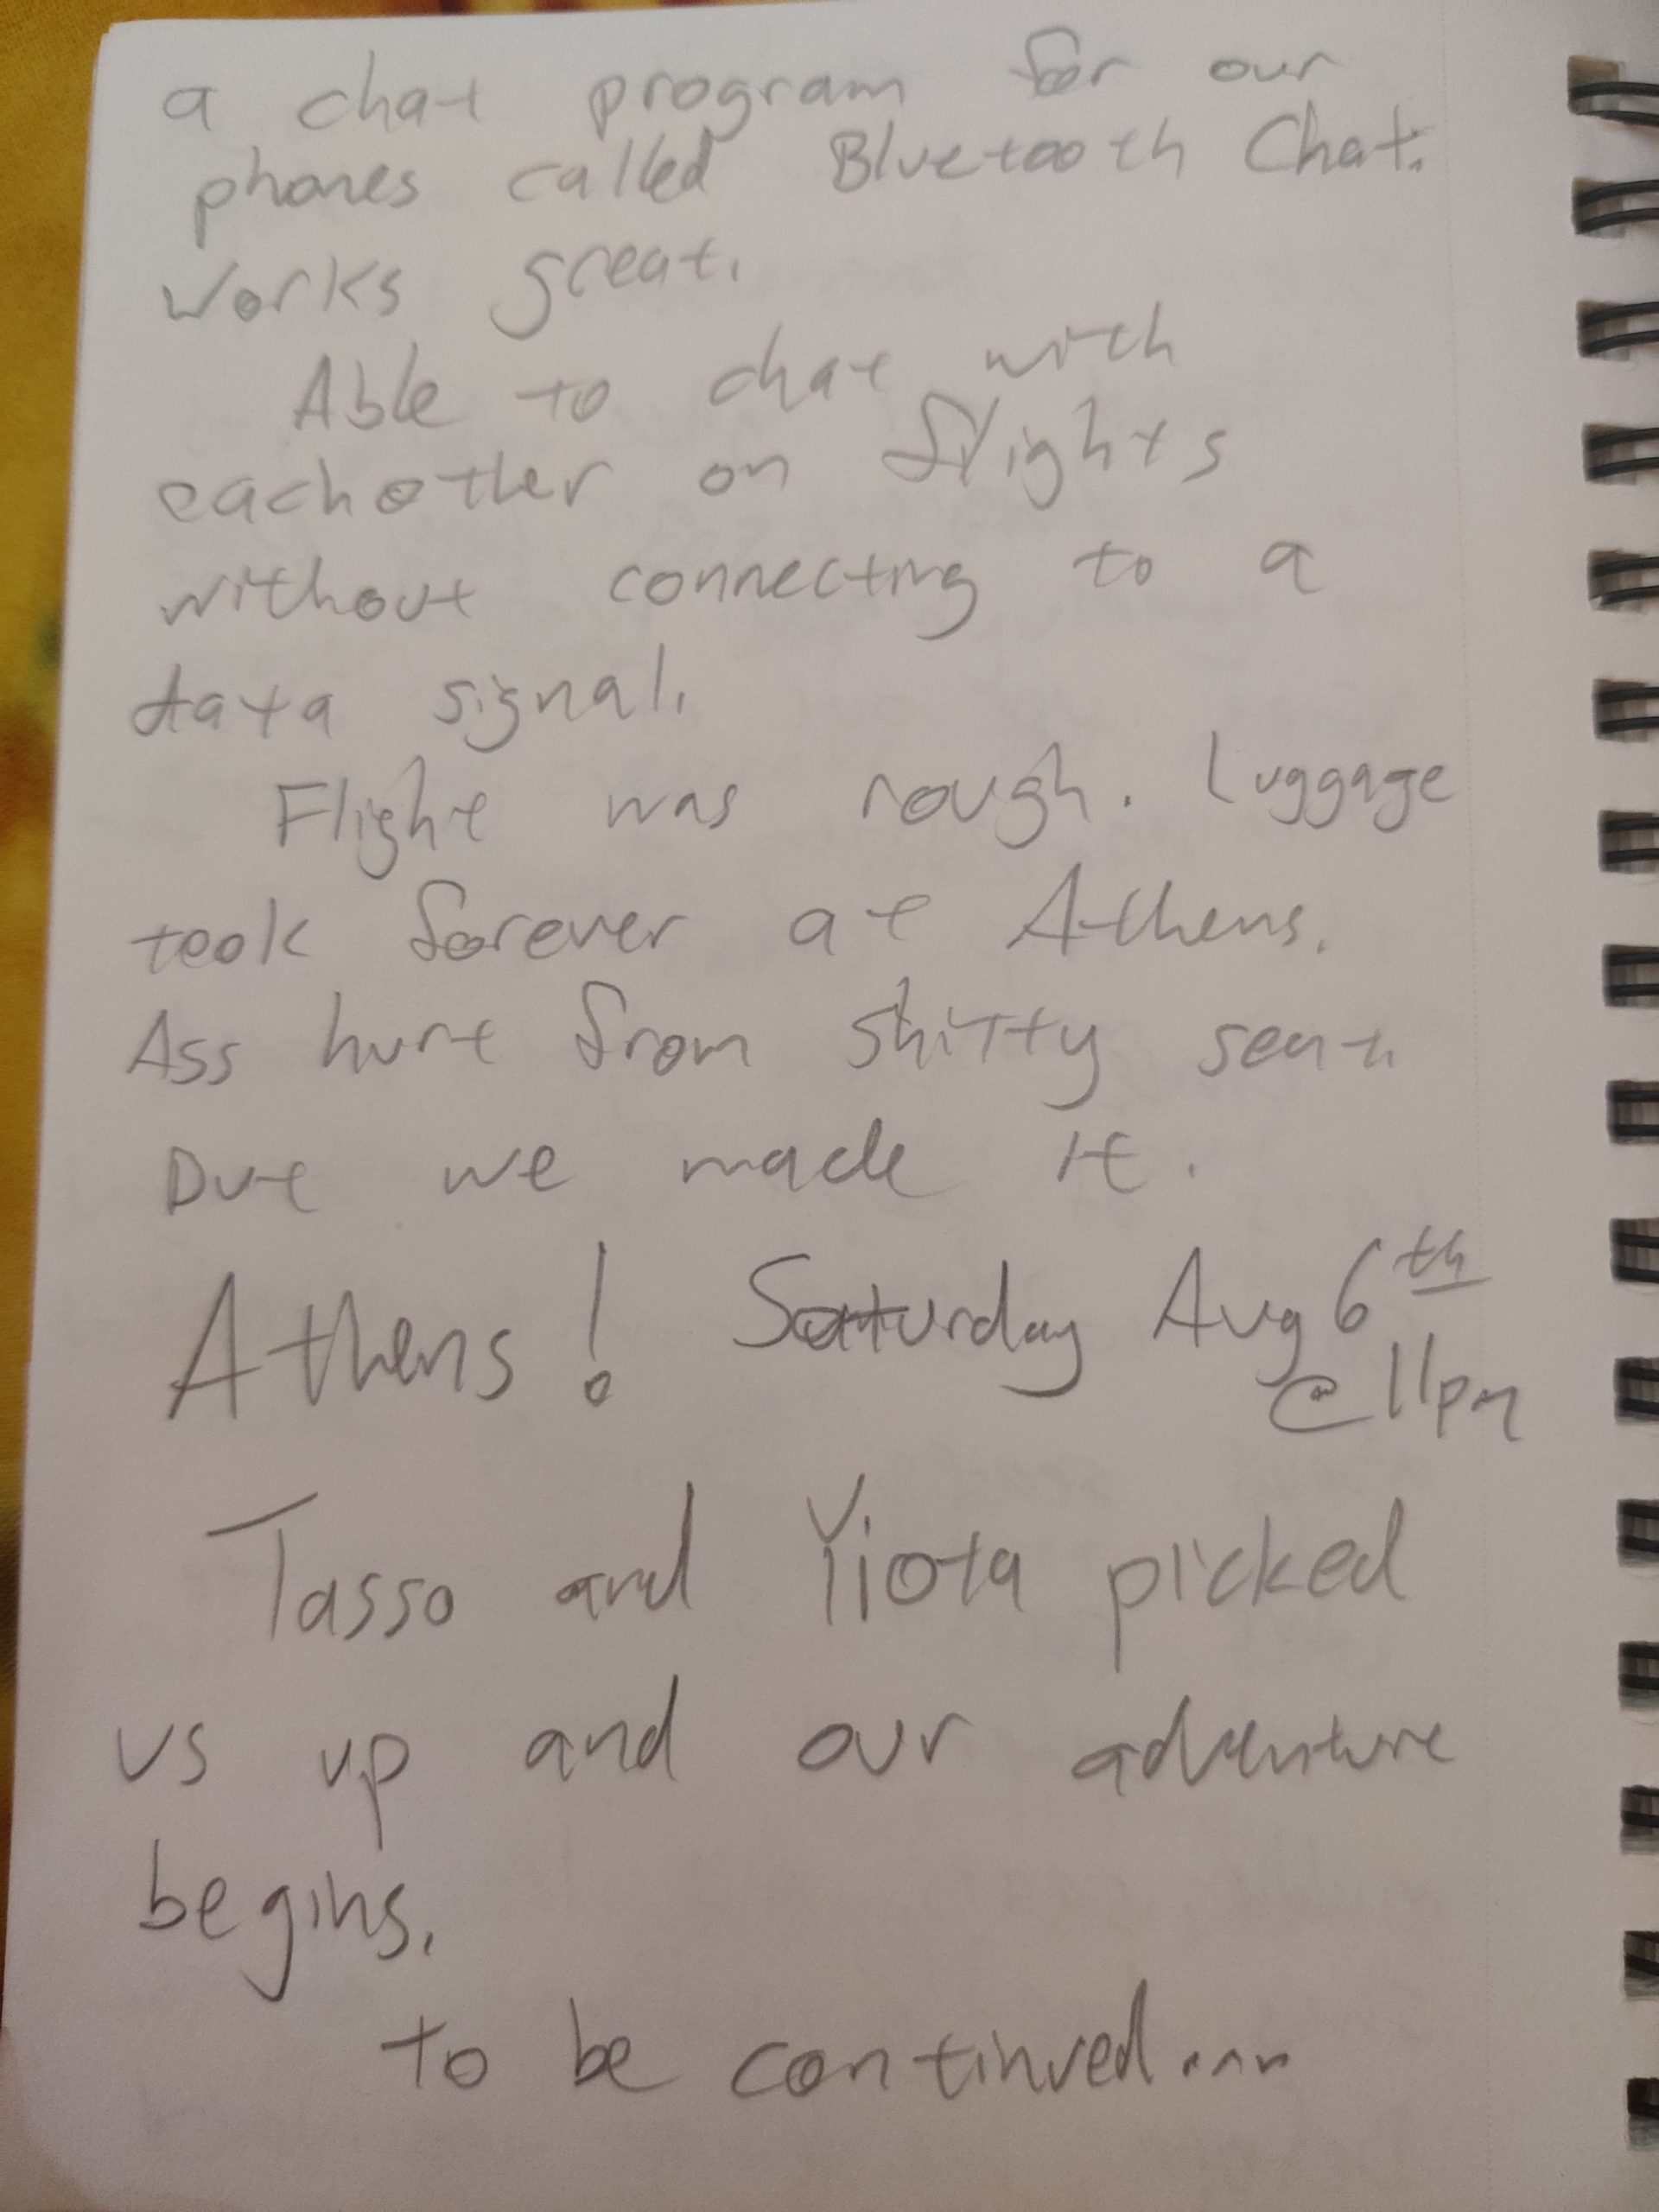 a chat program for our
phones called Bluetooth Chat.
Works great.
Able to chat with
eachother on flights
without connecting to a
data signal.
Flight was rough. Luggage
took forever at Athens.
Ass hurt from shitty seat.
But we made it.
Athens! Saturday Aug 6th
@ 11pm
Tasso and Yiota picked
us up and our adventure
begins.
to be continued...